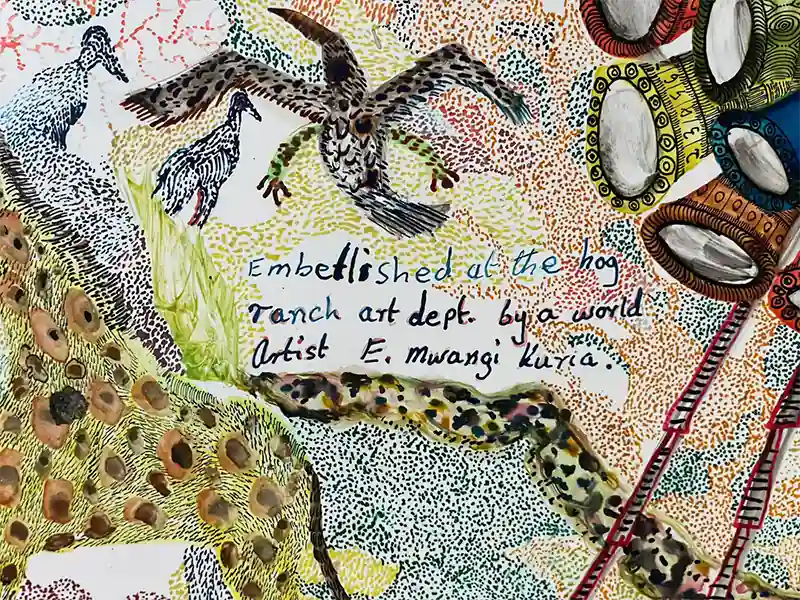 Embellished at the hog
ranch art dept. by a world
Artist E. Mwangi Kuria.